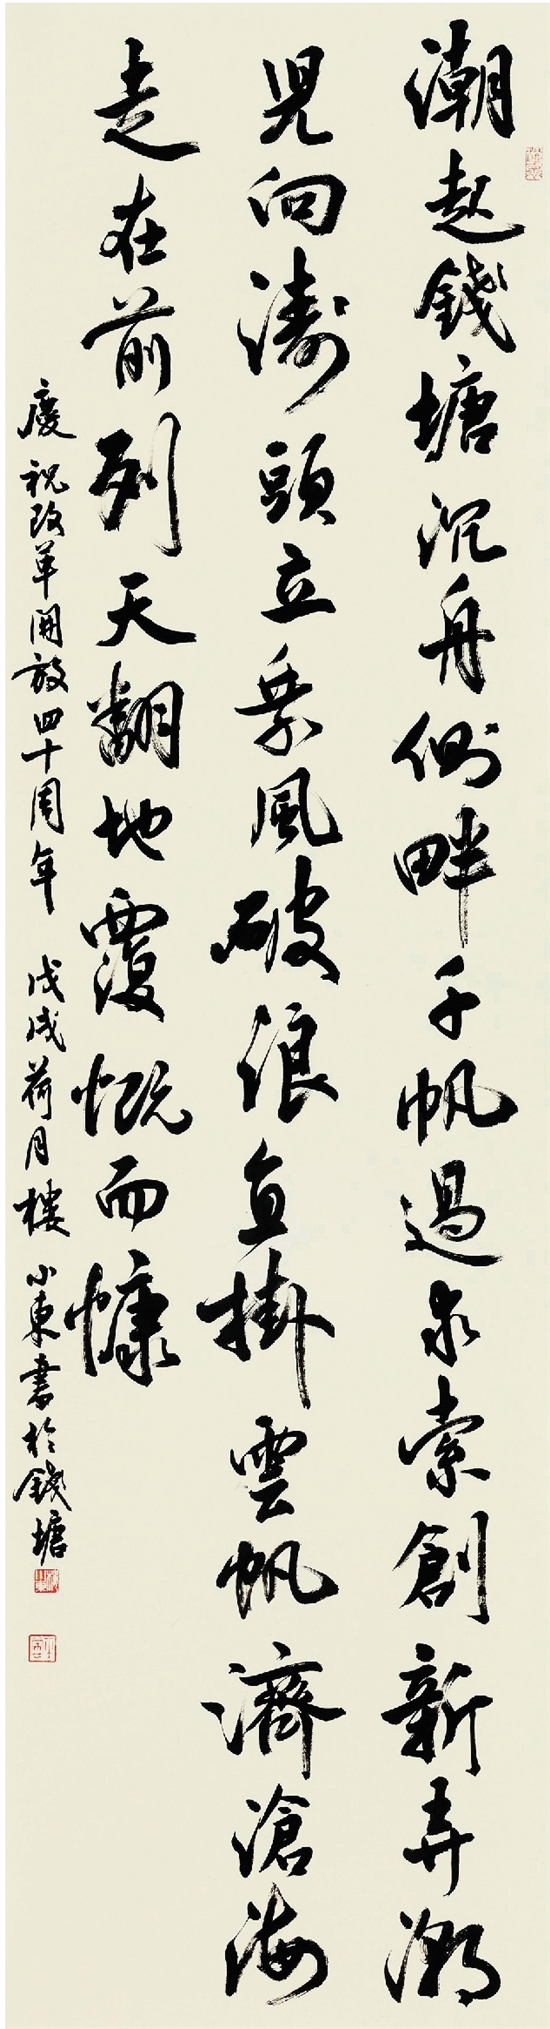 潮起錢塘沉舟側畔千帆過求索創新弄潮
児向濤頭立乗風破浪直掛雲帆濟滄海
走在前列天翻地覆慨而慷
慶祝改革開放四十周年 戊戌荷月樓小東書於錢塘